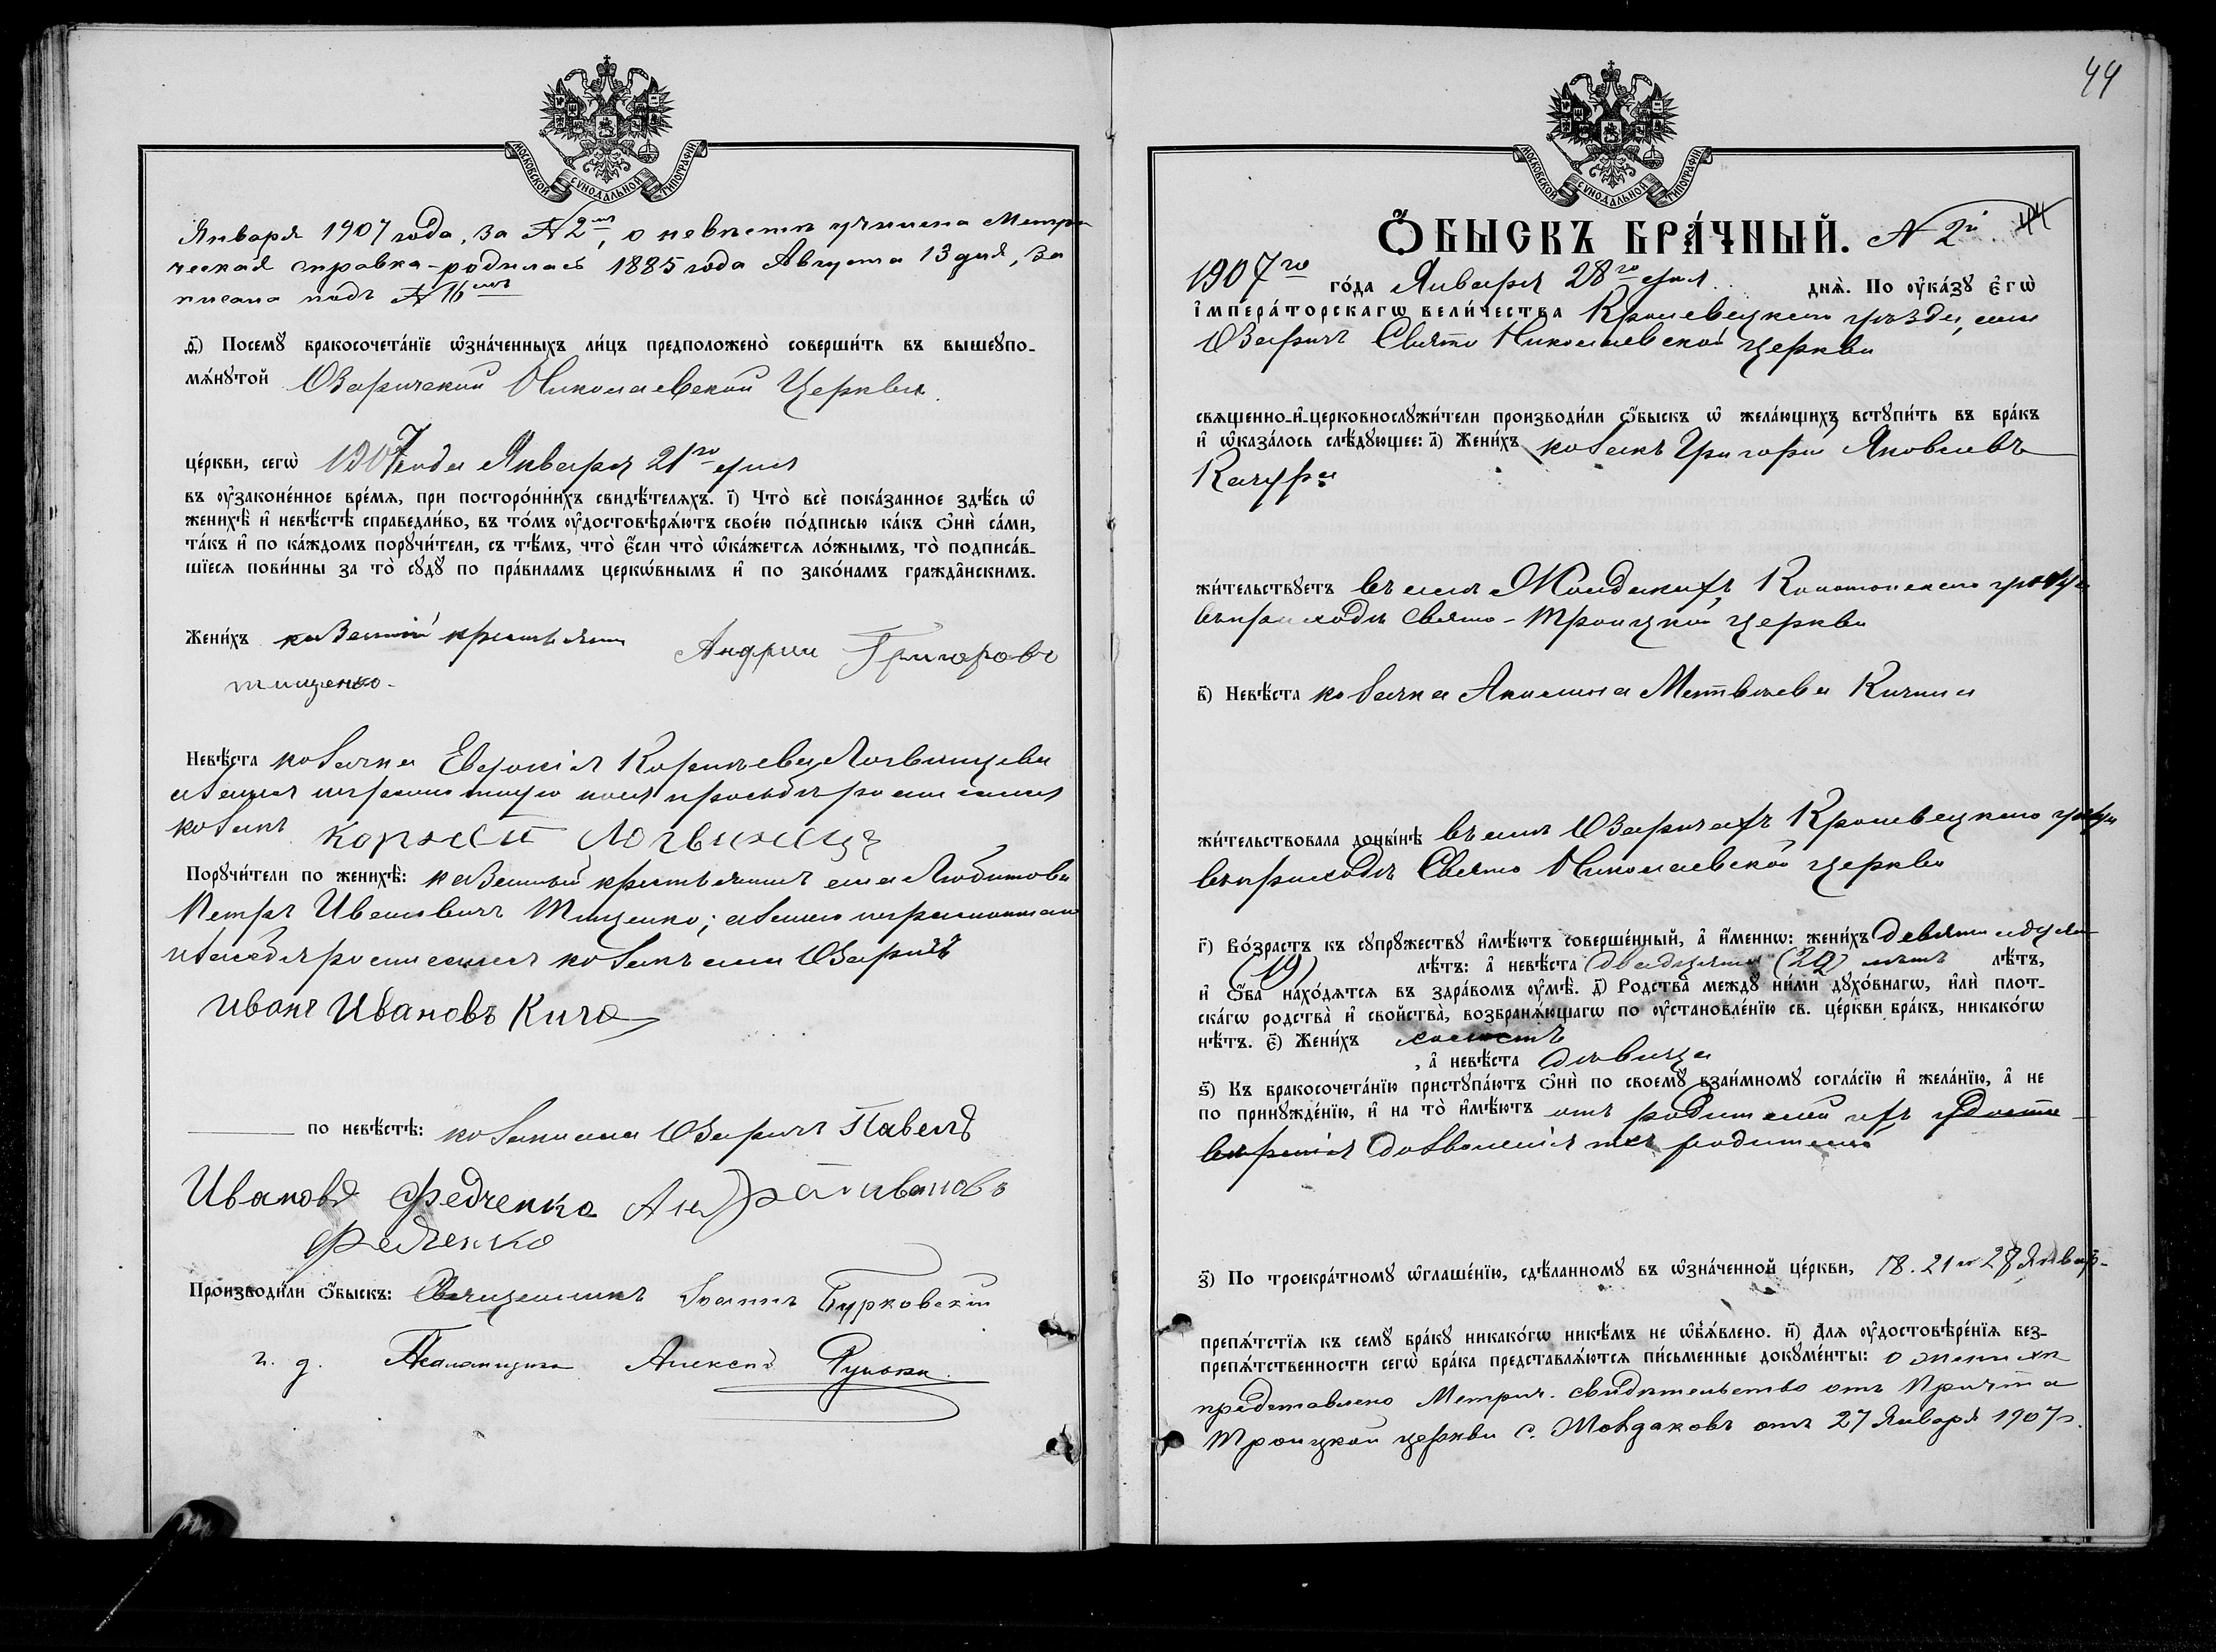 МОСКОВСКОЙ СѴНОДАЛЬНОЙ ТИПОГРАФІИ
Января 1907 года, за № 2мъ, о невѣстѣ учинена Метри
ческая справка - родилась 1885 года Августа 13 дня, за
писана подъ № 16мъ
ѳ) Посемꙋ бракосочетаніе ѡзначенныхъ лицъ предположено совершить въ вышеꙋпо-
мѧнꙋтой Озаричской Николаевской Церкви.
церкви, сегѡ 1907 года Января 21го дня
въ оузаконенное времѧ, при постороннихъ свидѣтелѧхъ. ї) Что все показанное здѣсь ѡ
женихѣ и невѣстѣ справедливо, въ томъ оудостовѣрѧютъ своею подписью какъ ѻни сами,
такъ и по каждомъ порꙋчители, съ тѣмъ, что если что ѡкажетсѧ ложнымъ, то подписав-
шїесѧ повинны за то сꙋдꙋ по правиламъ церкѡвнымъ и по законамъ гражданскимъ.
Женихъ казенный крестьянин Андрей Григоровъ
тищенко.
Невѣста козачка Евдокія Корнѣева Логвинцева
а за нея неграмотную по ея просьбѣ росписался
козакъ корней Логвинецъ
Порꙋчители по женихѣ: казенный крестьянинъ села Любитова
Петръ Ивановичъ Тищенко; а за него неграмотнаго
и за себя росписался козакъ села Озаричъ
Иванъ Ивановъ Кича
по невѣстѣ: козаки села Озаричъ Павелъ
Ивановъ Федченко Андрей Ивановъ
Федченко
Производили ѻбыскъ: Священникъ Іоаннъ Бурковскій
и. д. Псаломщика Алексѣй
44
МОСКОВСКОЙ СѴНОДАЛЬНОЙ ТИПОГРАФІИ
ѺБЫСКЪ БРАЧНЫЙ. № 2й 44
1907го года Января 28го дня днѧ. По оуказꙋ егѡ
императорскагѡ величества Кролевецкаго уѣзда, села
Озаричъ Свято Николаевской церкви
свѧщенно-и-церковнослꙋжители производили ѻбыскъ ѡ желающихъ встꙋпить въ бракъ
и ѡказалось слѣдꙋющее: а) Женихъ козакъ Григорій Яковлевъ
Качура
жительствꙋетъ въ селѣ Молдакахъ Конотопскаго уѣзда
въ приходѣ Свято-Троицкой церкви
в) Невѣста козачка Акилина Матвѣева Кичина
жительствовала донынѣ въ селѣ Озаричахъ Кролевецкаго уѣзда
въ приходѣ Свято Николаевской церкви
г) Возрастъ къ сꙋпрꙋжествꙋ имѣютъ совершенный, а именнѡ: женихъ девятнадцати
(19) лѣтъ: а невѣста двадцати (20) лѣтъ лѣтъ,
и ѻба находѧтсѧ въ здравомъ оумѣ. д) Родства междꙋ ними дꙋховнагѡ, или плот-
скагѡ родства и свойства, возбранѧющагѡ по оустановленїю св. церкви бракъ, никакогѡ
нѣтъ. є) Женихъ холостъ
, а невѣста дѣвица
ѕ) Къ бракосочетанїю пристꙋпаютъ ѻни по своемꙋ взаимномꙋ согласїю и желанїю, а не
по принꙋжденїю, и на то имѣютъ отъ родителей ихъ удосто
вѣренія дозволенія ихъ родителей
з) По троекратномꙋ ѡглашенїю, сдѣланномꙋ въ ѡзначенной церкви, 18. 21 и 28 Январ-
препѧтствїѧ къ семꙋ бракꙋ никакогѡ никѣмъ не ѡбъѧвлено. и) Длѧ оудостовѣренїѧ без-
препѧтственности сегѡ брака представлѧютсѧ письменные докꙋменты: о женихѣ
представлено Метрич. свидѣтельство отъ Причта
Троицкой церкви с. Молдаковъ отъ 27 Января 1907 г.